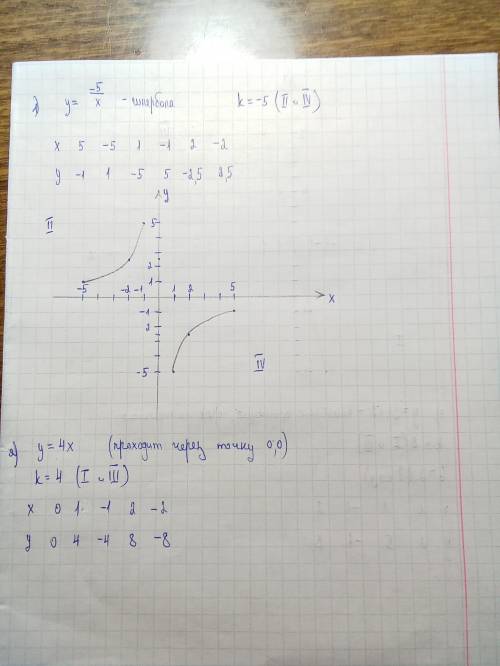 y = -5/x - гипербола k = -5 (II и IV)
x 5 -5 1 -1 2 -2
y -1 1 -5 5 -2,5 2,5
y
II
5
2
1
-5 -2 -1 1 2 5 x
-1
2
-5
IV
2) y = 4x (проходит через точку 0,0)
k = 4 (I и III)
x 0 1 -1 2 -2
y 0 4 -4 8 -8